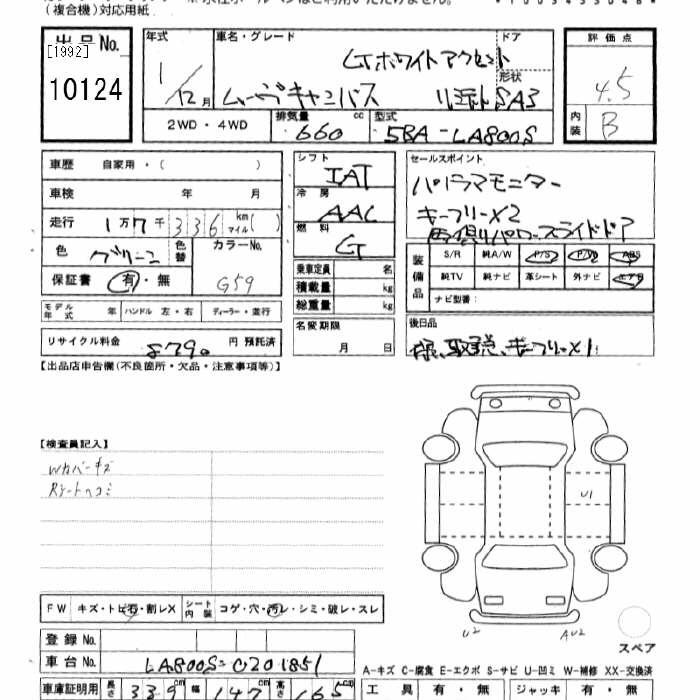 (複合機)対応用紙
出品No.
[1992]
10124
年式
1/12月
車名・グレード
Gホワイトアクセント
ムーヴキャンバス
ドア
形状
SA3
2WD・4WD
排気量
660 cc
型式
5BA-LA800S
評価点
4.5
内装
B
車歴 自家用・( )
車検 年 月
走行 1万7千336 km マイル( )
色 グリーン 色替 カラーNo. G59
保証書 有・無
モデル年式 年 ハンドル 左・右 ディーラー・並行
リサイクル料金 8790 円 預託済
シフト IAT
冷房 AAC
燃料 G
乗車定員 名
積載量 kg
総重量 kg
名変期限
月 日
セールスポイント
パノラマモニター
キーフリーX2
両側パワースライドドア
装備品
S/R 純A/W P/S P/W ABS
純TV 純ナビ 革シート 外ナビ エアB
ナビ型番:
後日品
キーフリーX1
【出品店申告欄(不良箇所・欠品・注意事項等)】
【検査員記入】
Wカバーキズ
Rゲートヘコミ
U1
U2
AU2
スペア
FW キズ・トビ石・割レX シート内装 コゲ・穴・汚レ・シミ・破レ・スレ
登録No.
車台No. LA800S-0201851
車庫証明用 長さ 339 cm 幅 147 cm 高さ 165 cm
A-キズ C-腐食 E-エクボ S-サビ U-凹ミ W-補修 XX-交換済
工具 有・無 ジャッキ 有・無